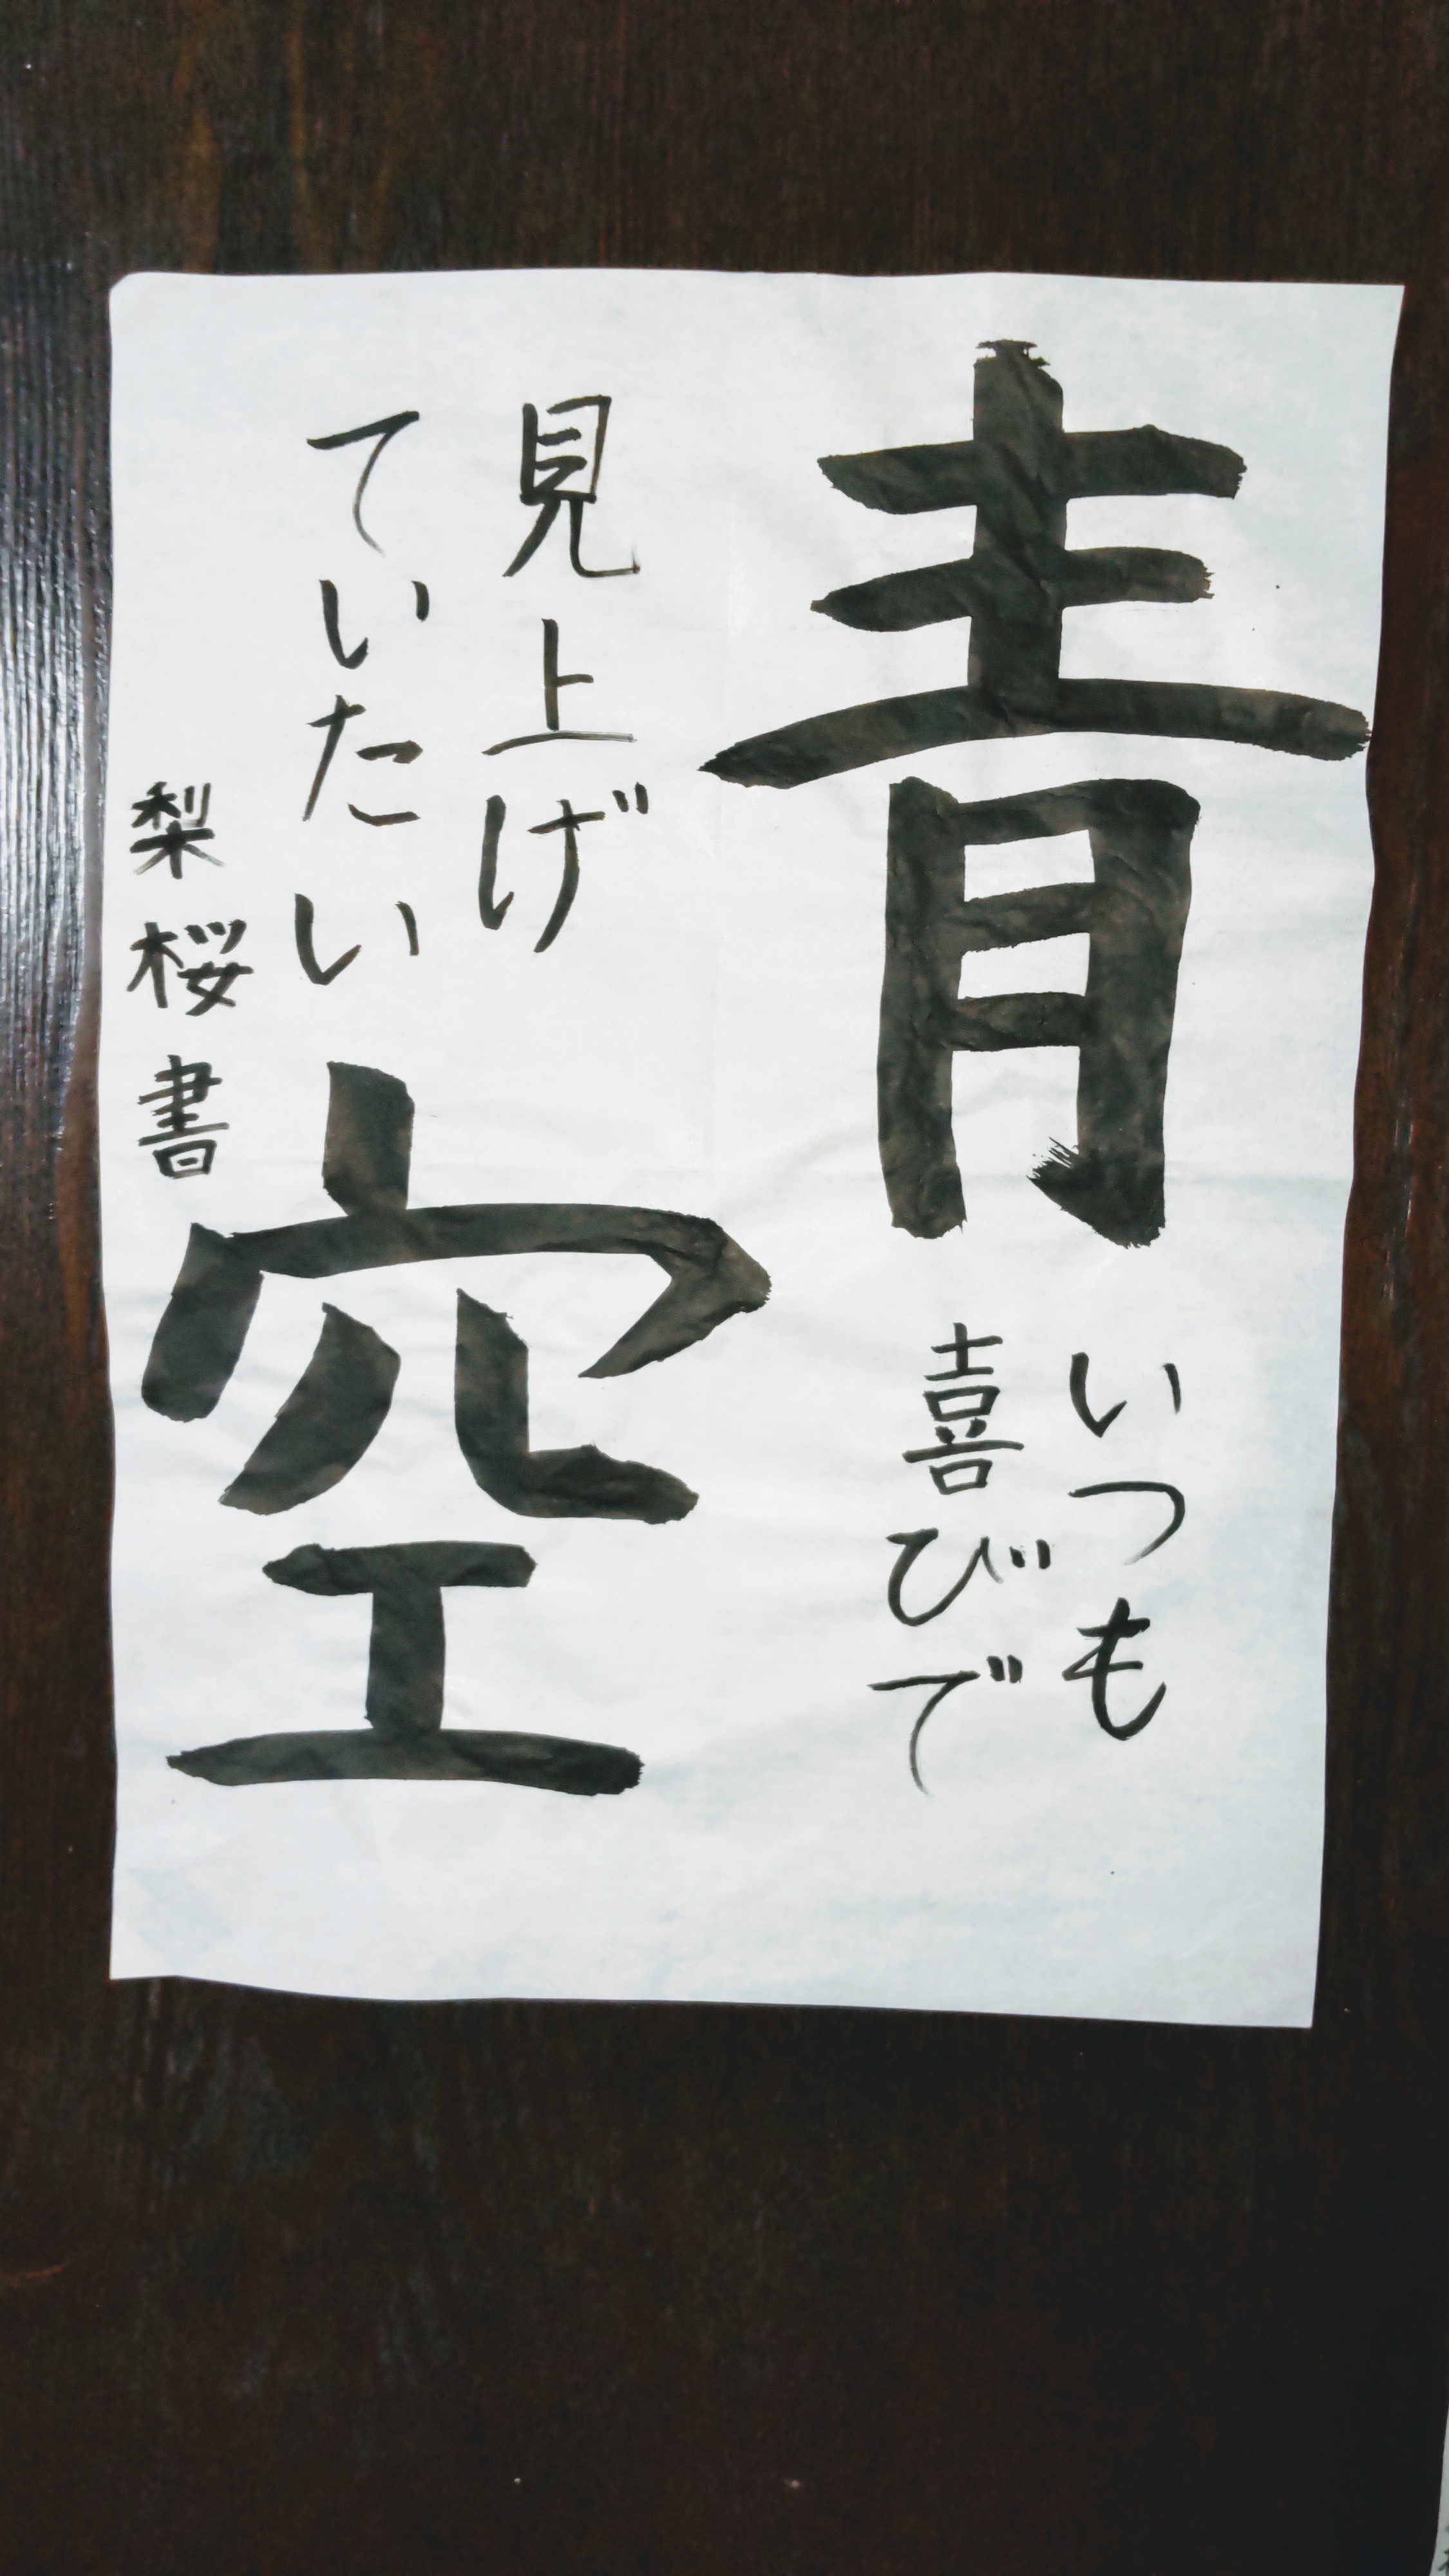 青
いつも
喜びで
見上げ
ていたい
空
梨桜書